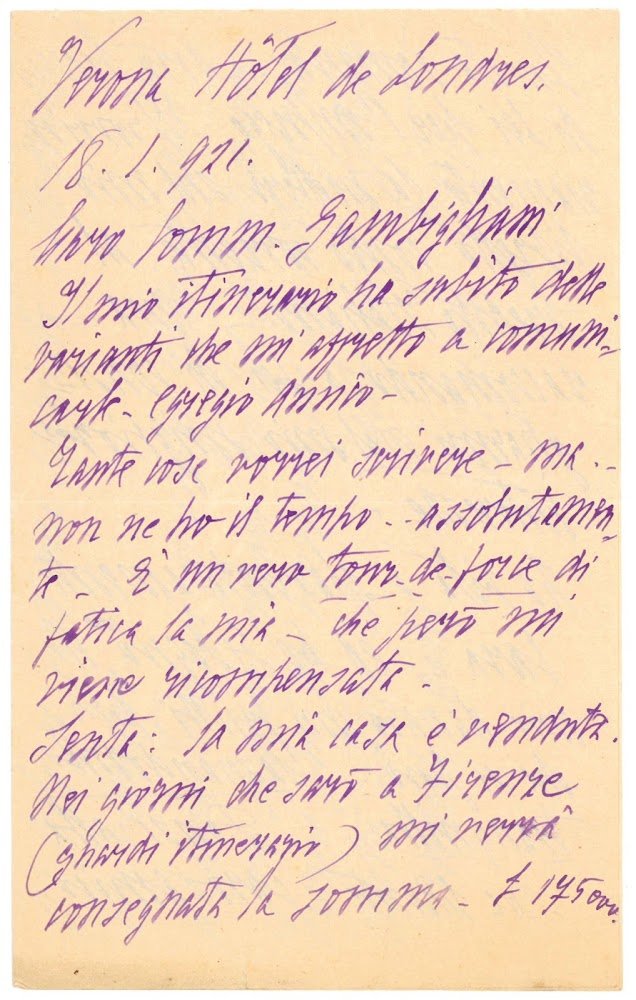 Verona Hôtel de Londres.
18. 1. 921.
Caro Comm. Gambigliani
Il mio itinerario ha subito delle
varianti che mi affretto a comuni-
carle - egregio amico -
Tante cose vorrei scrivere - ma -
non ne ho il tempo - assolutamen-
te - È un vero tour-de-force di
fatica la mia - che però mi
viene ricompensata -
Senta: la mia casa è venduta.
Nei giorni che sarò a Firenze
(guardi itinerario) mi verrà
consegnata la somma - £ 175000.